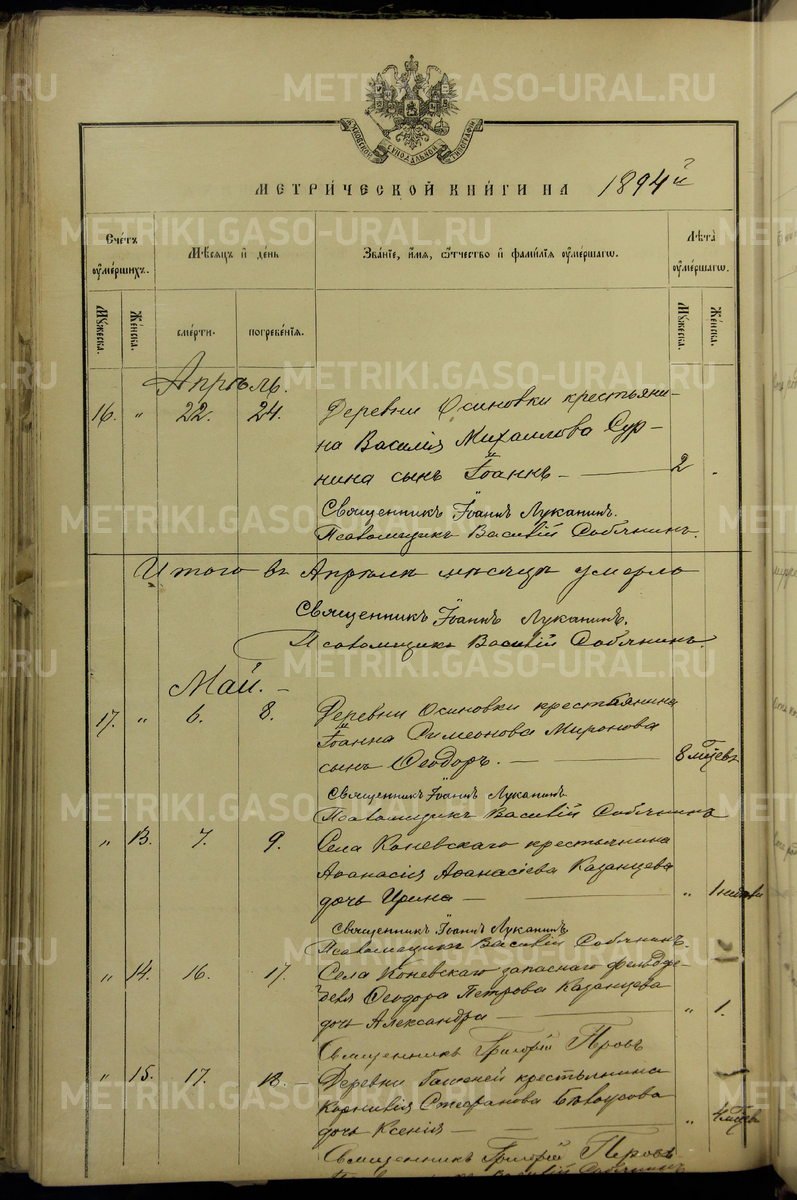 МОСКОВСКОЙ СѴНОДАЛЬНОЙ ТИПОГРАФІИ
МЕТРИ́ЧЕСКОЙ КНИ́ГИ НА 1894й
Сче́тъ ᲂу҆ме́ршихъ.
Мѣ́сяцъ и҆ де́нь
Зва́нїе, и҆́мя, ѻ҆́тчество и҆ фами́лїя ᲂу҆ме́ршагѡ.
Лѣ́та ᲂу҆ме́ршагѡ.
Мꙋ́жеска.
Же́нска.
сме́рти.
погребе́нїя.
Мꙋ́жеска.
Же́нска.
Апрѣль.
16. „ 22. 24. Деревни Осиновки крестьяни-
на Василія Михаилова Сур-
нина сынъ Іоаннъ — 2 „
Священникъ Іоаннъ Луканинъ.
Псаломщикъ Василій Собянинъ.
Итого въ Апрѣлѣ мѣсяцѣ умерло
Священникъ Іоаннъ Луканинъ.
Псаломщикъ Василій Собянинъ.
Май. —
17. „ 6. 8. Деревни Осиновки крестьянина
Іоанна Симеонова Миронова
сынъ Ѳеодоръ. — 8 мѣсяцевъ
Священникъ Іоаннъ Луканинъ
Псаломщикъ Василій Собянинъ
„ 13. 7. 9. Села Коневскаго крестьянина
Аѳанасія Аѳанасіева Казанцева
дочь Ирина — „ 1 недѣли
Священникъ Іоаннъ Луканинъ
Псаломщикъ Василій Собянинъ.
„ 14. 16. 17. Села Коневскаго запаснаго фельдфе-
беля Ѳеодора Петрова Казанцева
дочь Александра — „ 1.
Священникъ Григорій Перовъ
„ 15. 17. 18. — Деревни крестьянина
Корнилія Стефанова Бѣлоусова
дочь Ксенія — „ 4 мѣсяцевъ
Священникъ Григорій Перовъ
Псаломщикъ Василій Собянинъ
METRIKI.GASO-URAL.RU